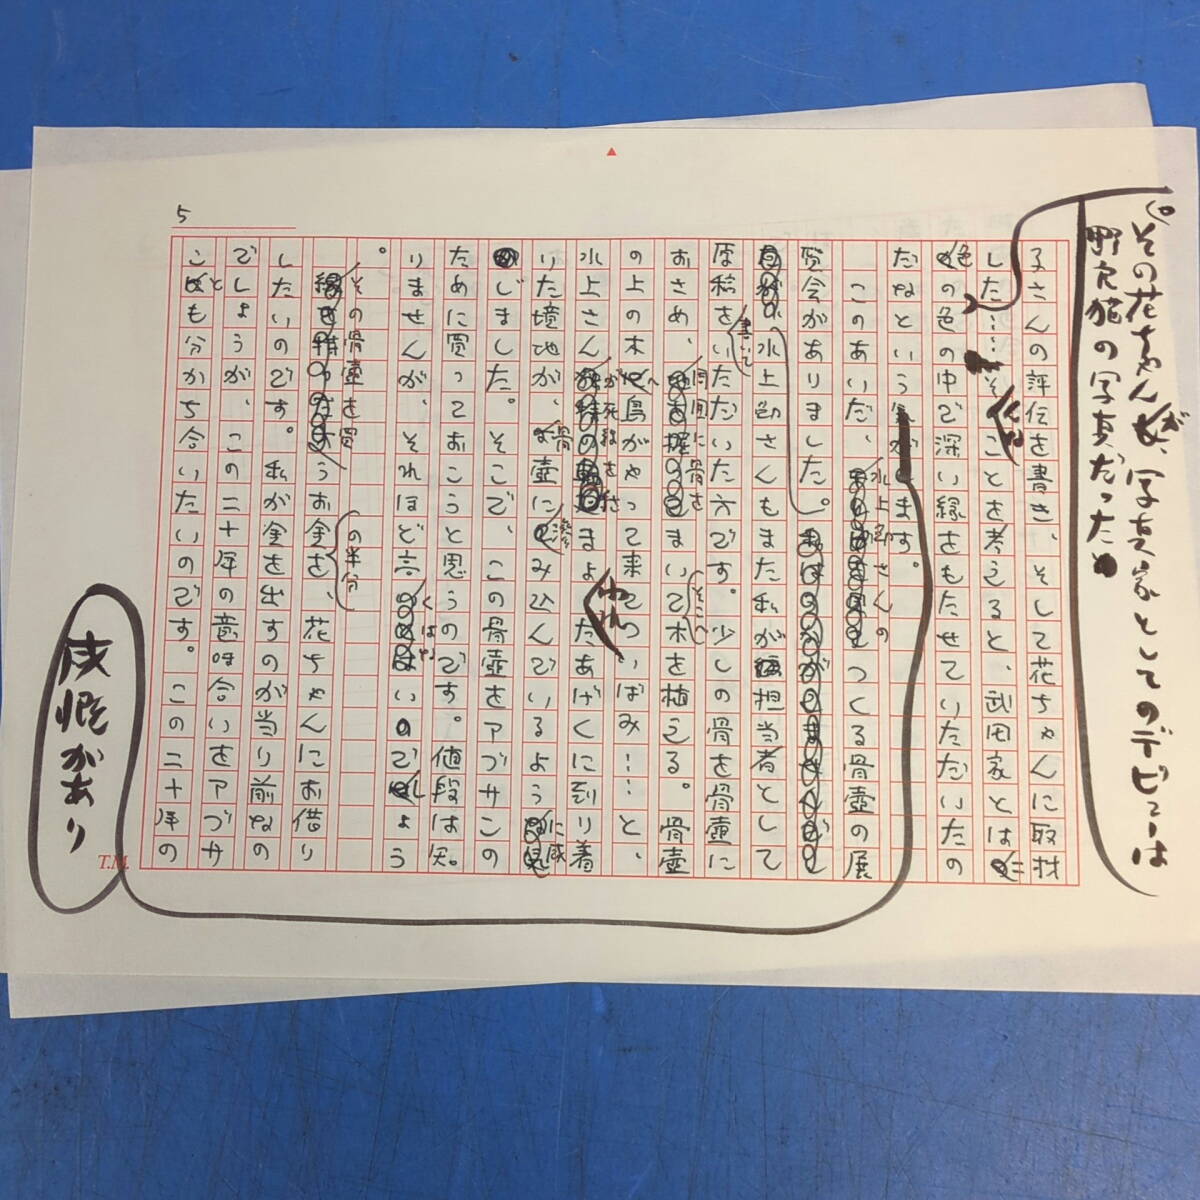 5
その花ちゃんが、写真家としてのデビューは
野良猫の写真だった
子さんの評伝を書き、そして花ちゃんに取材
した……そんなことを考えると、武田家とは
色の中で深い縁をもたせていただいたの
だなという
ます。
感慨があり
このあいだ、水上勉さんのつくる骨壺の展
覧会がありました。
水上勉さんもまた私が担当者として
原稿を書いていただいた方です。少しの骨を骨壺に
おさめ、周囲に骨をまいてそこへ木を植える。骨壺
の上の木へ鳥がやって来てついばみ……と、
水上さんが死線をさまよわれたあげくに到り着
いた境地が、骨壺に滲み込んでいるように感
じました。そこで、この骨壺をアヅサンの
ために買っておこうと思うのです。値段は知
りませんが、それほど高くはないのでしょう
。
その骨壺を買うお金の半分を、花ちゃんにお借り
したいのです。私が全を出すのが当り前なの
でしょうが、この二十年の意味合いをアヅサ
ことも分かち合いたいのです。この二十年の
T.M.